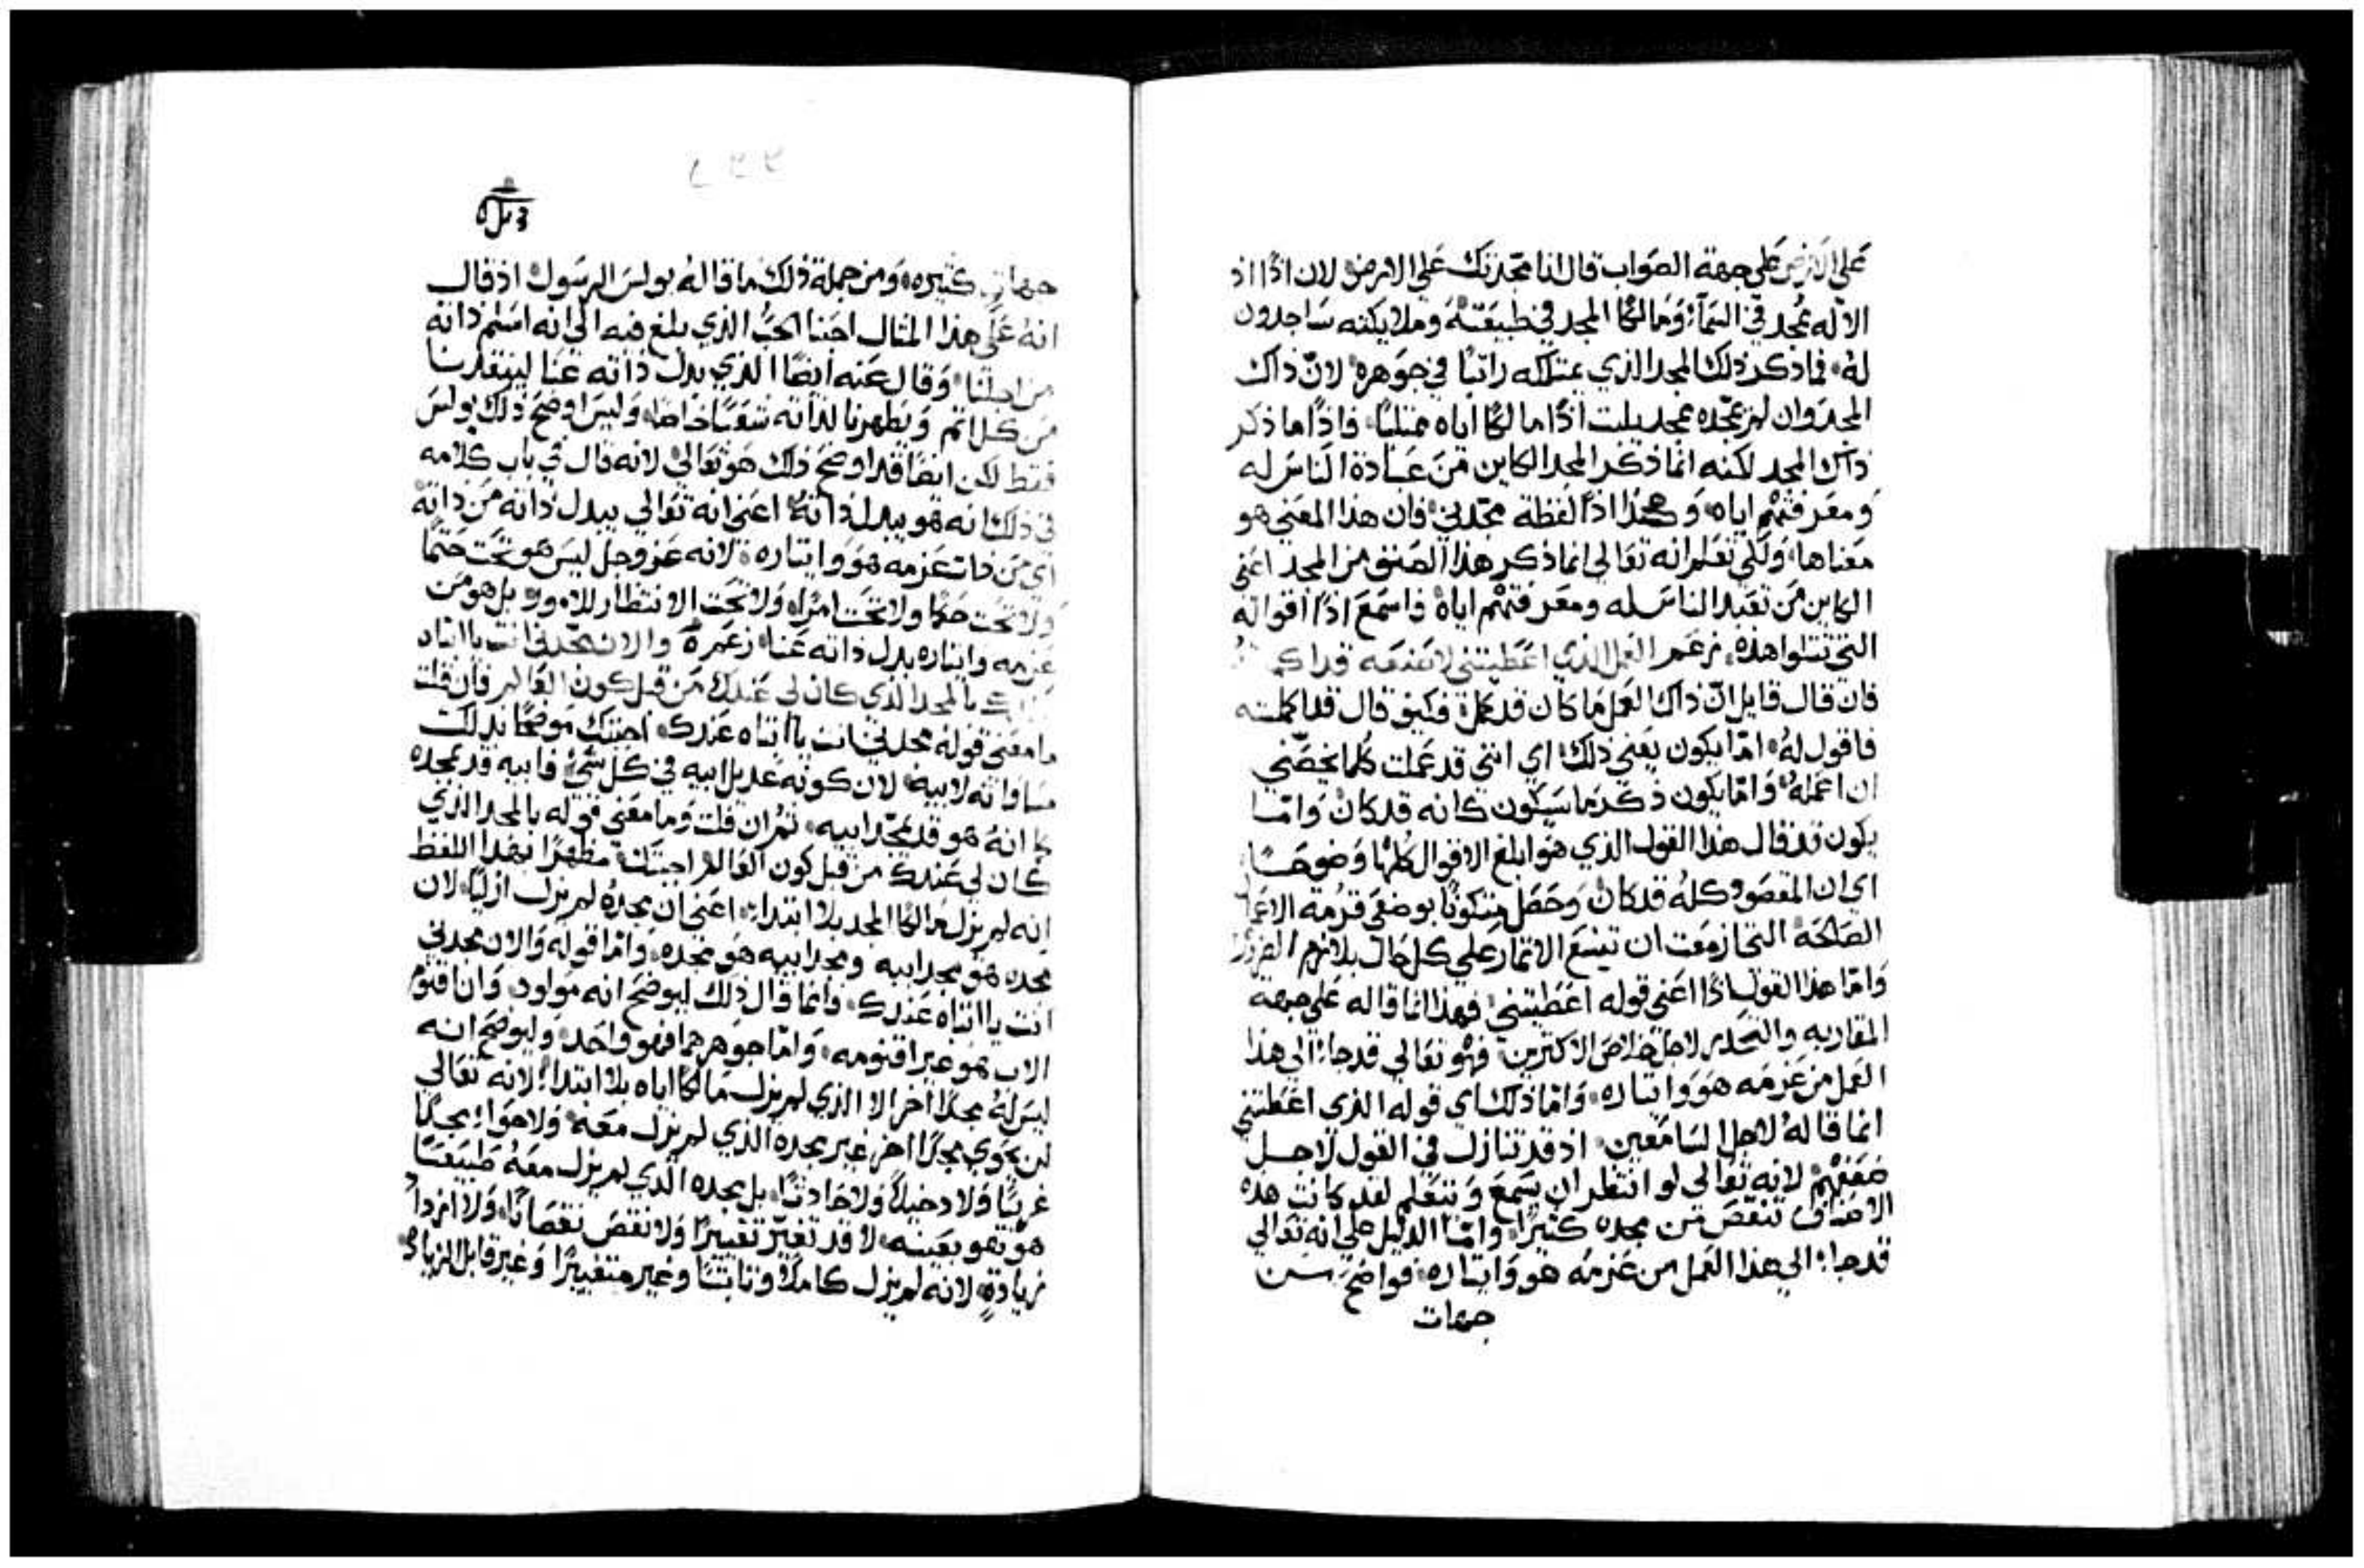 على الارض على جهة الصواب قال انا مجدتك على الارض لان اذًا اذ
الاله مُجد في السمآء وَمالكًا المجد في طبيعَتهُ وملايكته سَاجدون
لهُ فما ذكر ذلك المجد الذي يمتلكه راتبًا في جوَهره لانّ ذاك
المجد وان لم يمجّده ممجد يلبث اذًا مالكًا اياه ممتليًا فاذًا ما ذكر
ذاك المجد لكنه انما ذكر المجد الكاين من عبَادة الناسَ له
وَمعَرفتهُم اياه وَهكذا اذًا لفظة مجّدني فان هذا المعَني هو
معَناها وَلكي تعَلم انه تعَالي انما ذكر هذا الصنف من المجد اعَني
الكاين من تعَبد الناسَ له ومعَرفتهُم اياهُ فاسمَعَ اذًا اقواله
التي تتلوا هذه زعَم العَمل الذي اعَطيتني لاصَنعَه قد
فان قال قايل انّ ذاك العَمل مَا كان قد كمل فكيف قال قد اكملته
فاقول لهُ امّا يكون يعَني ذلك اي انني قد عَملت كلما يخصَّني
ان اعَملهُ وَامّا يكون ذكر مَا سَيكون كانه قد كان وَامّا
يكون قد قال هذا القول الذي هو ابلغ الاقوال كلها وَضوحًا
اي ان المقصَود كلهُ قد كان وَحصَل متكونًا بوضعَي قرمَة
الصَالحَة التي ازمعَت ان تينع الاثمار على كل حَال بلازم
وَامّا هذا القول اذًا اعَني قوله اعَطيتني فهذا انما قاله عَلى جهة
المقاربه والتحدر لاجل خلاصَ الاكثرين فهُو تعَالي قد جاء الى هذا
العَمل من عَزمَه هوَ وَايثاره وَامّا ذلك اي قوله الذي اعَطيتني
انما قالهُ لاجل السَامعَين اذ قد تنازل في القول لاجل
ضعَفهُم لانه تعَالي لو انتظر ان يسَمعَ وَيتعَلم لقد كانت هذه
الاصَناف تنقّصَ من مجده كثيرًا وامّا الدليل على انه تعَالي
قد جاء الى هذا العَمل من عَزمَه هو وَايثاره فواضح من
جهات
جهاتٍ كثيره وَمن جملة ذلك ما قالهُ بولسَ الرسَول اذ قال
انهُ عَلى هذا المثال احَبنا الحبَّ الذي بلغ فيه الى انه اسَلم ذاته
من اجلنا وَقال عَنه ايضًا الذي بدل ذاته عَنا لينقذنا
من كل اثم وَيطهرنا لذاته شعَبًا خاصًا وَليسَ اوضحَ ذلك بولسَ
فقط لكن ايضًا قد اوضحَ ذلك هوَ تعَالي لانه قال في باب كلامه
في ذلك انه هو يبدل ذاتهُ اعَني انه تعَالي يبدل ذاته من ذاته
اي من ذات عَزمه هوَ وايثاره لانه عَز وجل ليسَ هو تحَت حَتمًا
وَلا تحَت حكمًا ولا تحَت امرًا وَلا تحَت الانتظار للامور بل هو من
عَزمه وايثاره بدل ذاته عَنا زعَم والان مجّدني انت يا ابتاه
عَندك بالمجد الذي كان لي عَندك من قبل كون العَالم فان قلت
ما معَني قوله مجدني انت يا ابتاه عَندك اجبتك مَوضحًا بذلك
مسَاواته لابيه لان كونه عَديل ابيه في كل شَيء فابيه قد مجده
كما انهُ هو قد مجّد ابيه ثم ان قلت وَما معَني قوله بالمجد الذي
كان لي عَندك من قبل كون العَالم اجبتك مظهرًا بهذا اللفظ
انه لم يزل مَالكًا المجد بلا ابتداء اعَني ان مجدهُ لم يزل ازليًا لان
مجده هو مجد ابيه ومجد ابيه هو مجده وَامّا قوله وَالان مجدني
انت يا ابتاه عَندك وانما قال ذلك ليوضحَ انه مَولود وَان اقنوم
الاب هو غير اقنومه وَامّا جوَهرهما فهو واحَد وَليوضحَ انه
ليسَ لهُ مجدًا اخر الا الذي لم يزل مَالكًا اياه بلا ابتداء لانه تعَالي
لن يحَوي مجدًا اخر غير مجده الذي لم يزل معَه وَلا هوَاء مجدًا
غريبًا وَلا دخيلًا وَلا حَادثًا بل مجده الذي لم يزل معَهُ طبيعَيًا
هو هو بعَينه لا قد تغيّر تغييرًا وَلا نقصَ نقصَانًا وَلا ازداد
زيادةٍ لانه لم يزل كاملًا وثابتًا وغير متغييرًا وَغير قابل الزيادة